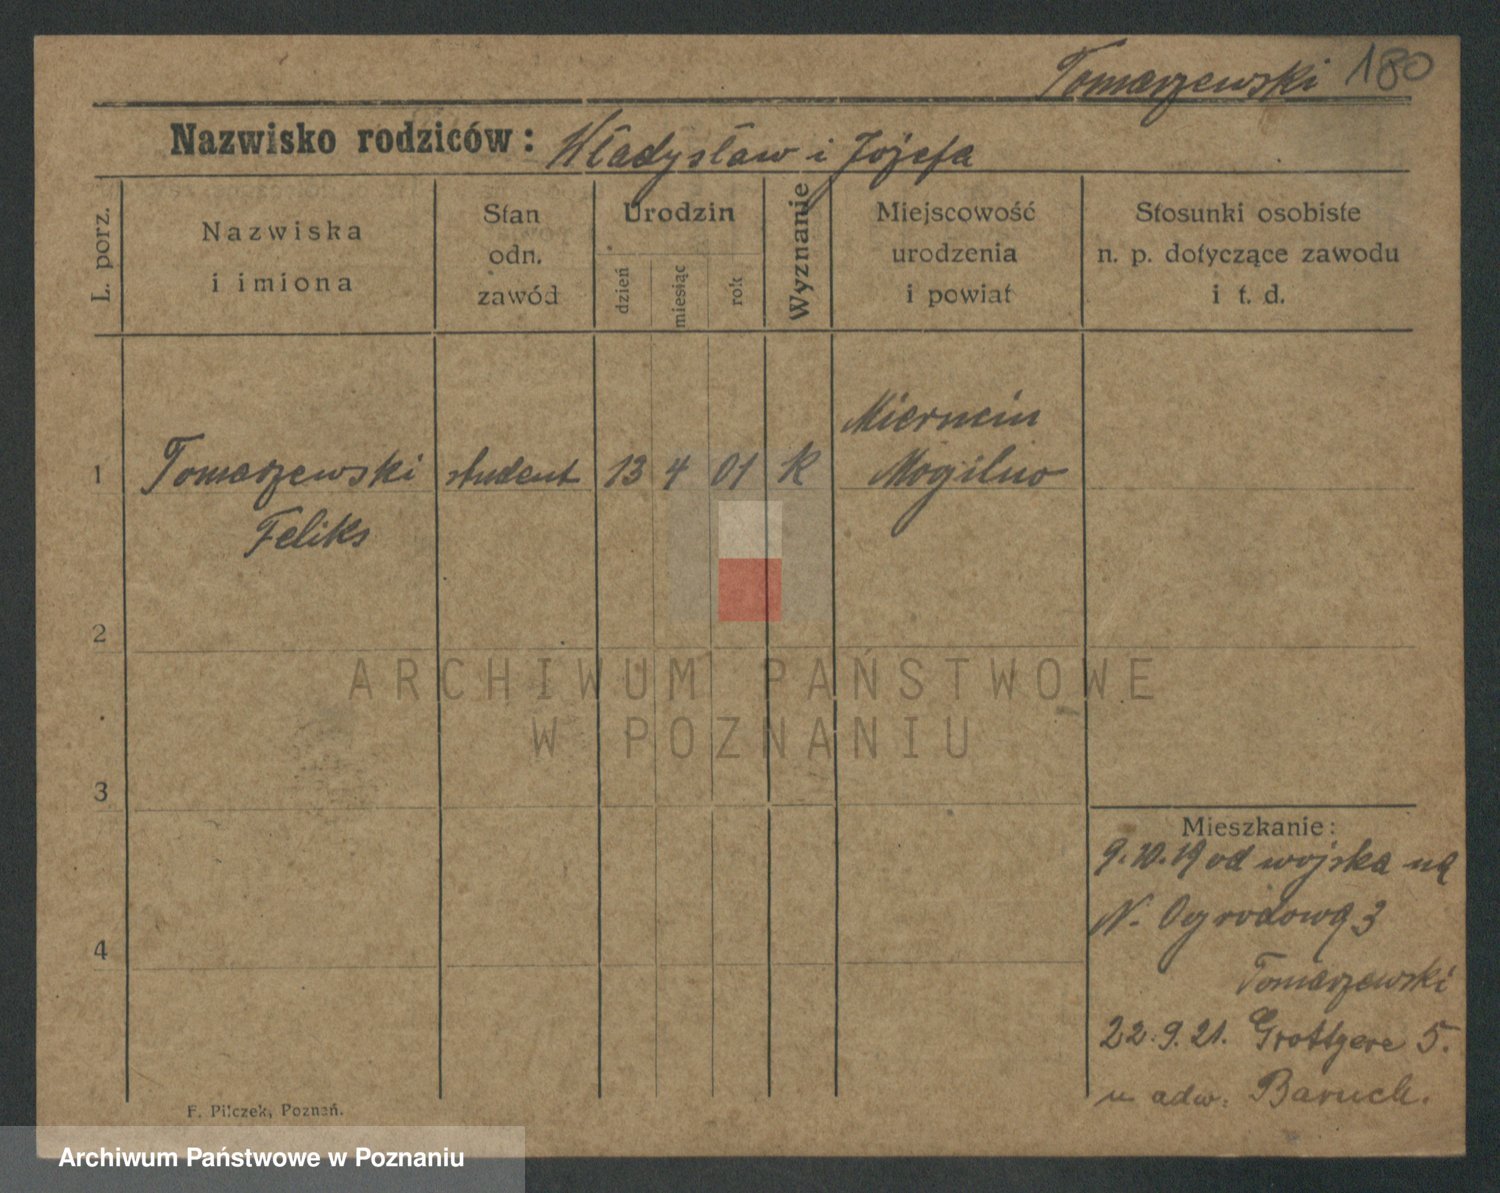 Tomaszewski 180
Nazwisko rodziców: Władysław i Józefa
L. porz.
Nazwiska
i imiona
Stan
odn.
zawód
Urodzin
dzień
miesiąc
rok
Wyznanie
Miejscowość
urodzenia
i powiat
Stosunki osobiste
n. p. dotyczące zawodu
i t. d.
Mierncin
1 Tomaszewski student 13 4 01 K Mogilno
Feliks
2
ARCHIWUM PAŃSTWOWE
W POZNANIU
3
Mieszkanie:
9.10.19 od wojska na
N. Ogrodową 3
4
Tomaszewski
22.9.21. Grottgera 5.
u adw. Baruch.
F. Pilczek, Poznań.
Archiwum Państwowe w Poznaniu